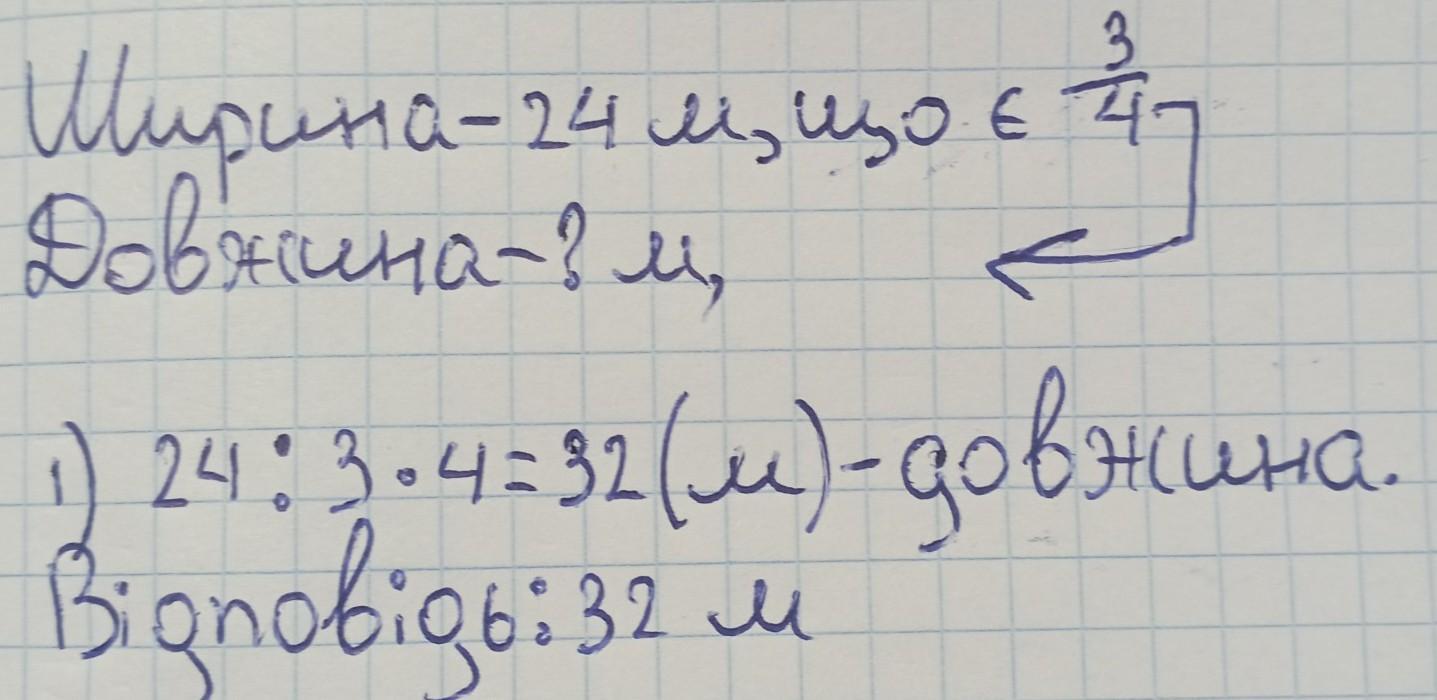 Ширина - 24 м, що є 3/4
Довжина - ? м,
1) 24 : 3 · 4 = 32 (м) - довжина.
Відповідь: 32 м